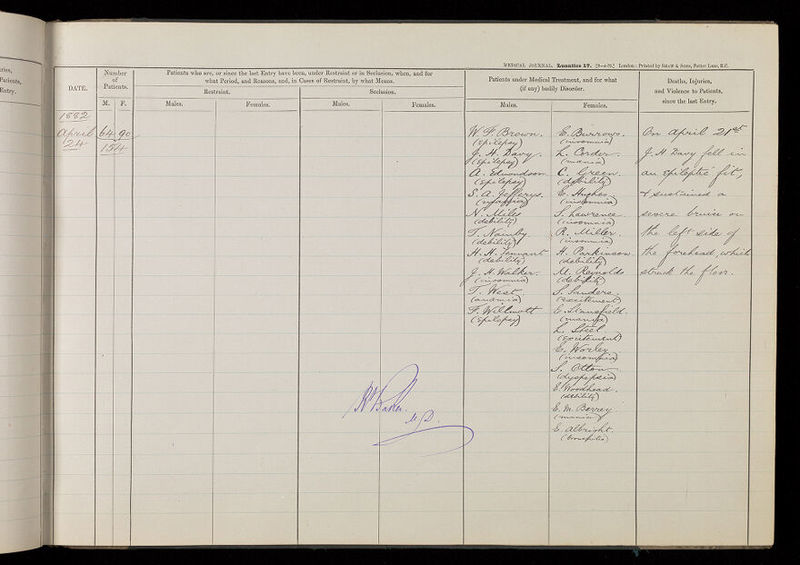 MEDICAL JOURNAL. Lunatics 27. London: Printed by SHAW & SONS, Fetter Lane, E.C.
uries,
Patients,
Entry.
DATE.
Number
of
Patients.
M. F.
Patients who are, or since the last Entry have been, under Restraint or in Seclusion, when, and for
what Period, and Reasons, and, in Cases of Restraint, by what Means.
Restraint.
Seclusion.
Males. Females. Males. Females.
Patients under Medical Treatment, and for what
(if any) bodily Disorder.
Males. Females.
Deaths, Injuries,
and Violence to Patients,
since the last Entry.
1882
April
24
64 90
154
W. F. Brown.
(epilepsy)
J. H. Davy.
(epilepsy)
A. Edmondson
(epilepsy)
S. A. Jefferys.
N. Miles
(debility)
T. Naimby
(debility)
H. H. Tennant
(debility)
J. H. Walker.
(insomnia)
T. West
(anæmia)
F. Willmott
(epilepsy)
E. Burrows.
(insomnia)
L. Corder.
(mania)
C. Green.
(debility)
E. Hughes
(insomnia)
S. Lawrence
(insomnia)
R. Miller.
(insomnia)
H. Parkinson
(debility)
M. Reynolds
(debility)
S. Sanders.
(excitement)
E. Stansfield.
(mania)
L. Steel
(excitement)
E. Worley
(insomnia)
S. Otton
(dyspepsia)
E. Woodhead.
(debility)
E. M. Berrey
(mania)
E. Albright.
(bronchitis)
On April 21st
J. H Davy fell in
an epileptic fit,
& sustained a
severe bruise on
the left side of
the forehead, which
struck the floor.
Baker.
M.D.